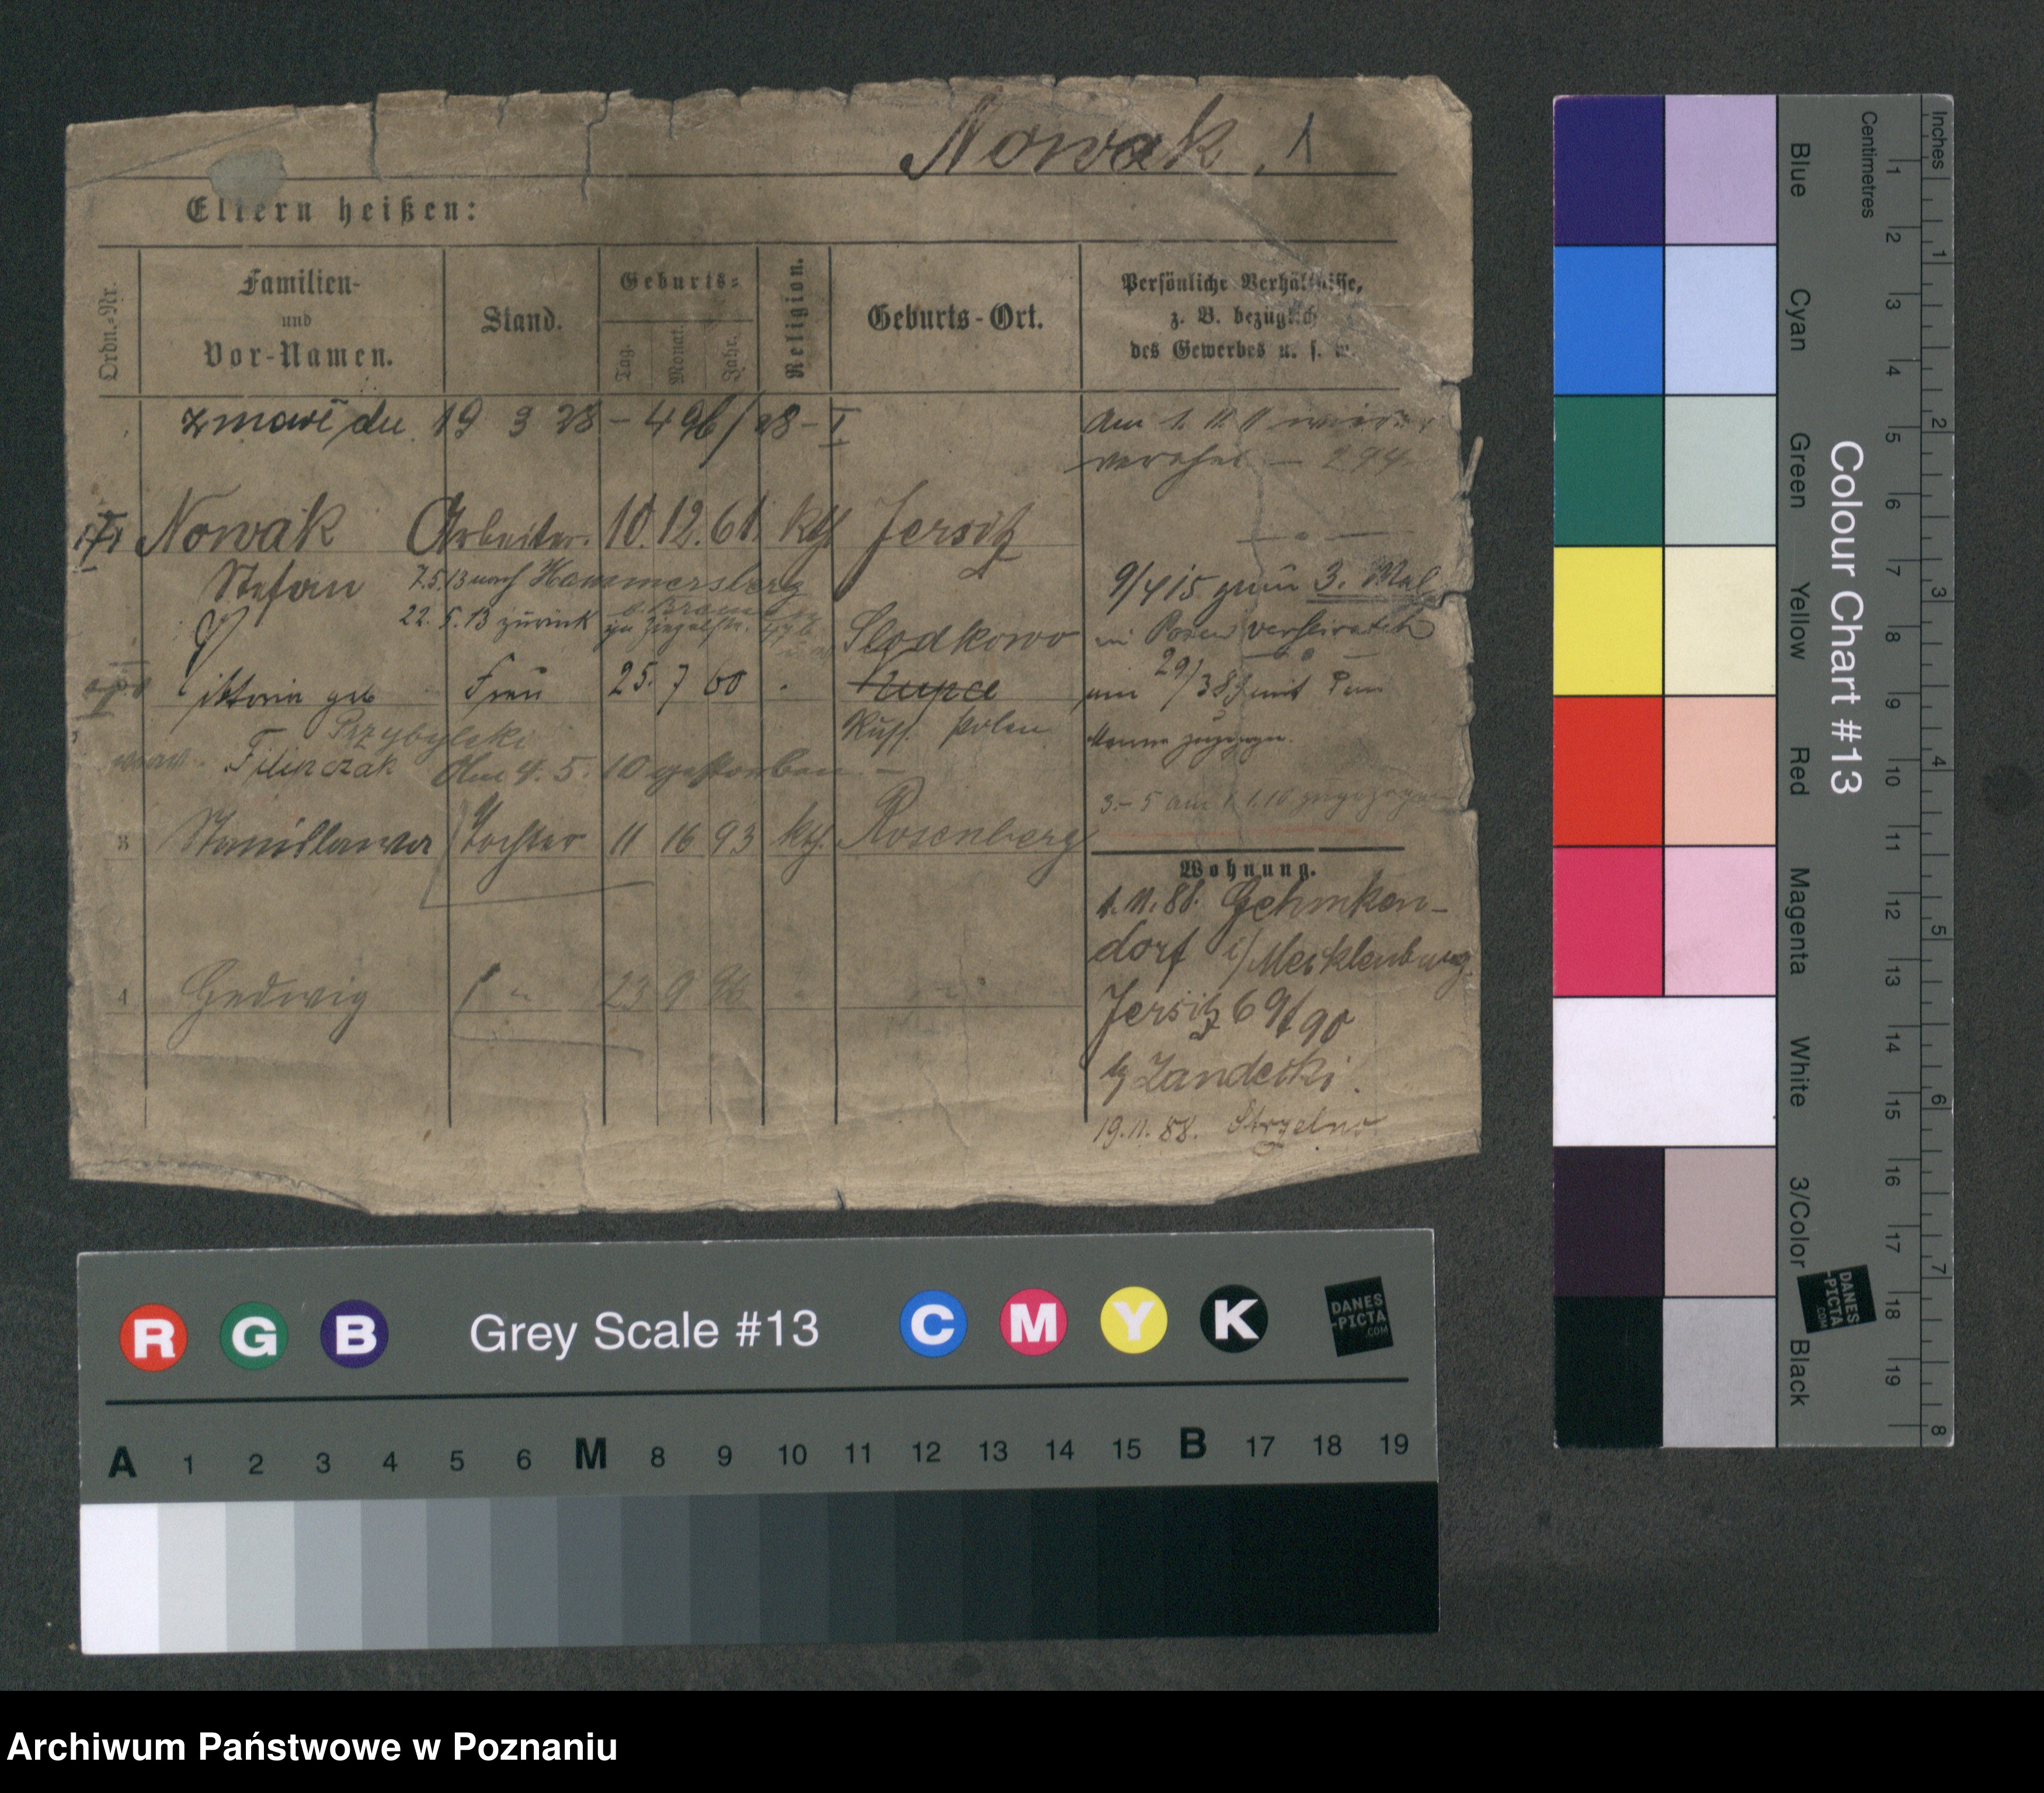 Nowak. 1
Eltern heißen:
Ordn.-Nr.
Familien-
und
Vor-Namen.
Stand.
Geburts-
Tag.
Monat.
Jahr.
Religion.
Geburts-Ort.
Persönliche Verhältnisse,
z. B. bezüglich
des Gewerbes u. s. w.
19 3 28 - 496/28 - I
Am 1. 11. 11
294
Nowak Arbeiter. 10. 12. 61. kth Jersitz
Stefan 7.5.13 nach Hammersberg
22. 5. 13 zurück
9/4 15 zum 3. Mal
in Posen verheiratet
Slodkowo
Viktoria geb Frau 25. 7 60 Kupce
am 29/3 87 mit
Russ. Polen
Manne zugezogen.
Przybylski
Filipczak Am 4. 5. 10 gestorben -
3 - 5 am 1. 1. 10 zugezogen
3 Stanislawa Tochter 11 16 93 kth. Rosenberg
Wohnung.
1. 11. 88. Gehmken-
dorf i/Mecklenburg.
4 Hedwig " 23 9 96
Jersitz 69/90
b/ Zandecki.
19. 11. 88. Strzelno
Grey Scale #13
R G B C M Y K
DANES
-PICTA
.COM
A 1 2 3 4 5 6 M 8 9 10 11 12 13 14 15 B 17 18 19
Colour Chart #13
Blue Cyan Green Yellow Red Magenta White 3/Color Black
DANES
-PICTA
.COM
Centimetres
1 2 3 4 5 6 7 8 9 10 11 12 13 14 15 16 17 18 19
Inches
1 2 3 4 5 6 7 8
Archiwum Państwowe w Poznaniu